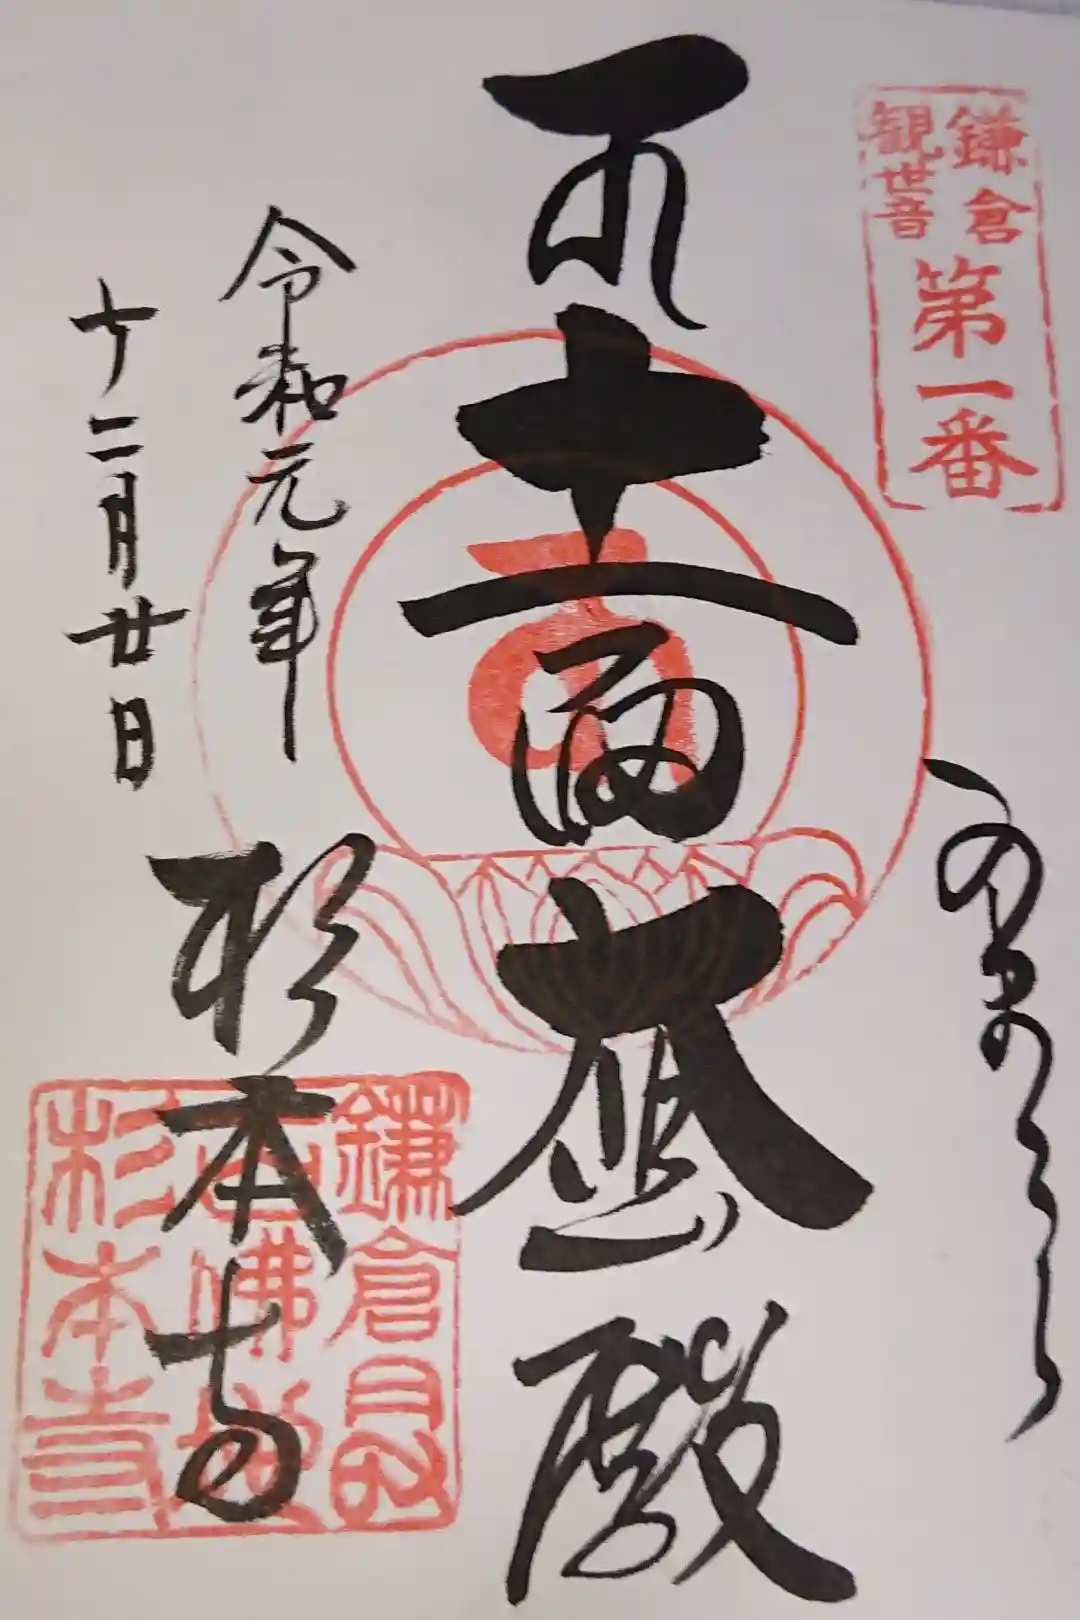 鎌倉
観世音
第一番
十一面大悲殿
令和元年
十二月廿日
杉本寺
鎌倉
佛地
杉本寺